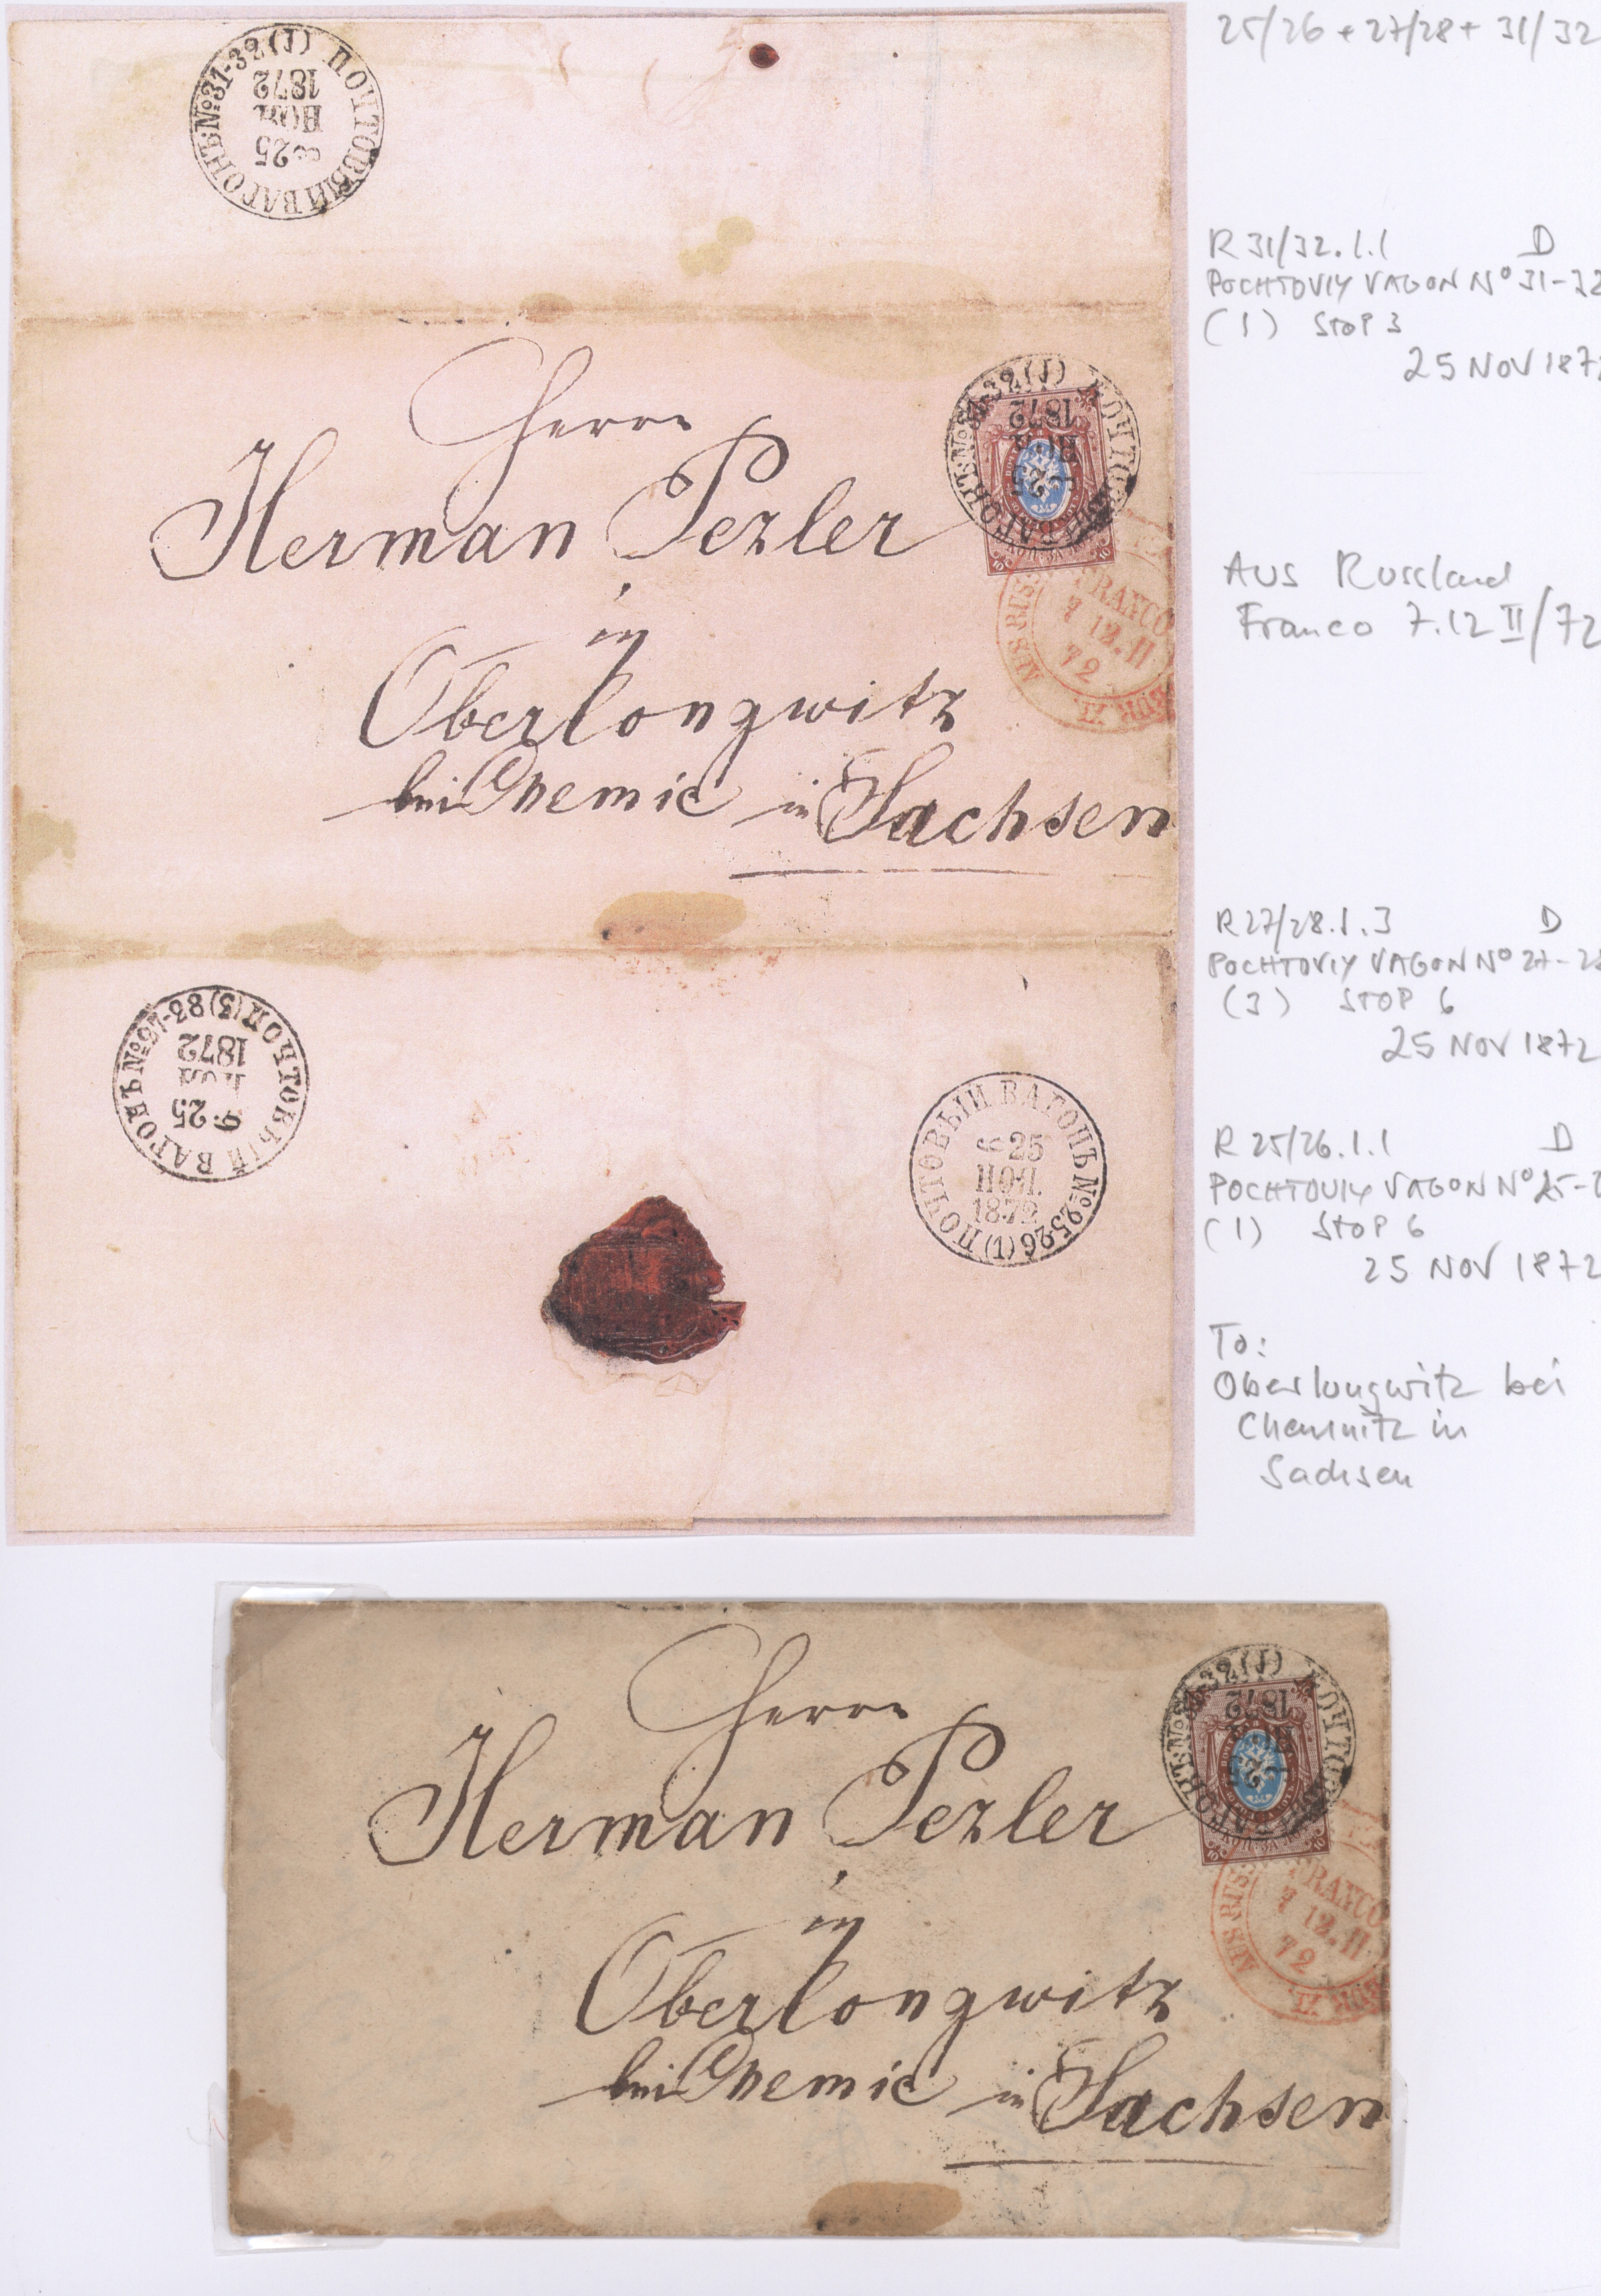 25/26 + 27/28 + 31/32
ПОЧТОВЫЙ ВАГОНЪ №31-32 (1)
25
НОЯ
1872
R 31/32.1.1 D
POCHTOVIY VAGON Nº 31-32
(1) STOP 3
25 NOV 187
Herrn
Herman Pezler
in
Oberlongwitz
bei Chemic in Sachsen
ВАГОНЪ №31-32 (1)
1872
AUS RUSS
FRANCO
7 12. II
72
Aus Russland
Franco 7.12 II/72
R 27/28.1.3 D
POCHTOVIY VAGON Nº 27-28
(3) STOP 6
25 NOV 1872
ПОЧТОВЫЙ ВАГОНЪ №27-28 (3)
25
НОЯ
1872
ПОЧТОВЫЙ ВАГОНЪ №25-26 (1)
6 25
НОЯ.
1872
R 25/26.1.1 D
POCHTOVIY VAGON Nº 25-2
(1) STOP 6
25 NOV 1872
To:
Oberlungwitz bei
Chemnitz in
Sachsen
Herrn
Herman Pezler
in
Oberlongwitz
bei Chemic in Sachsen
32 (1)
1872
AUS RUSS
FRANCO
7 12. II
72